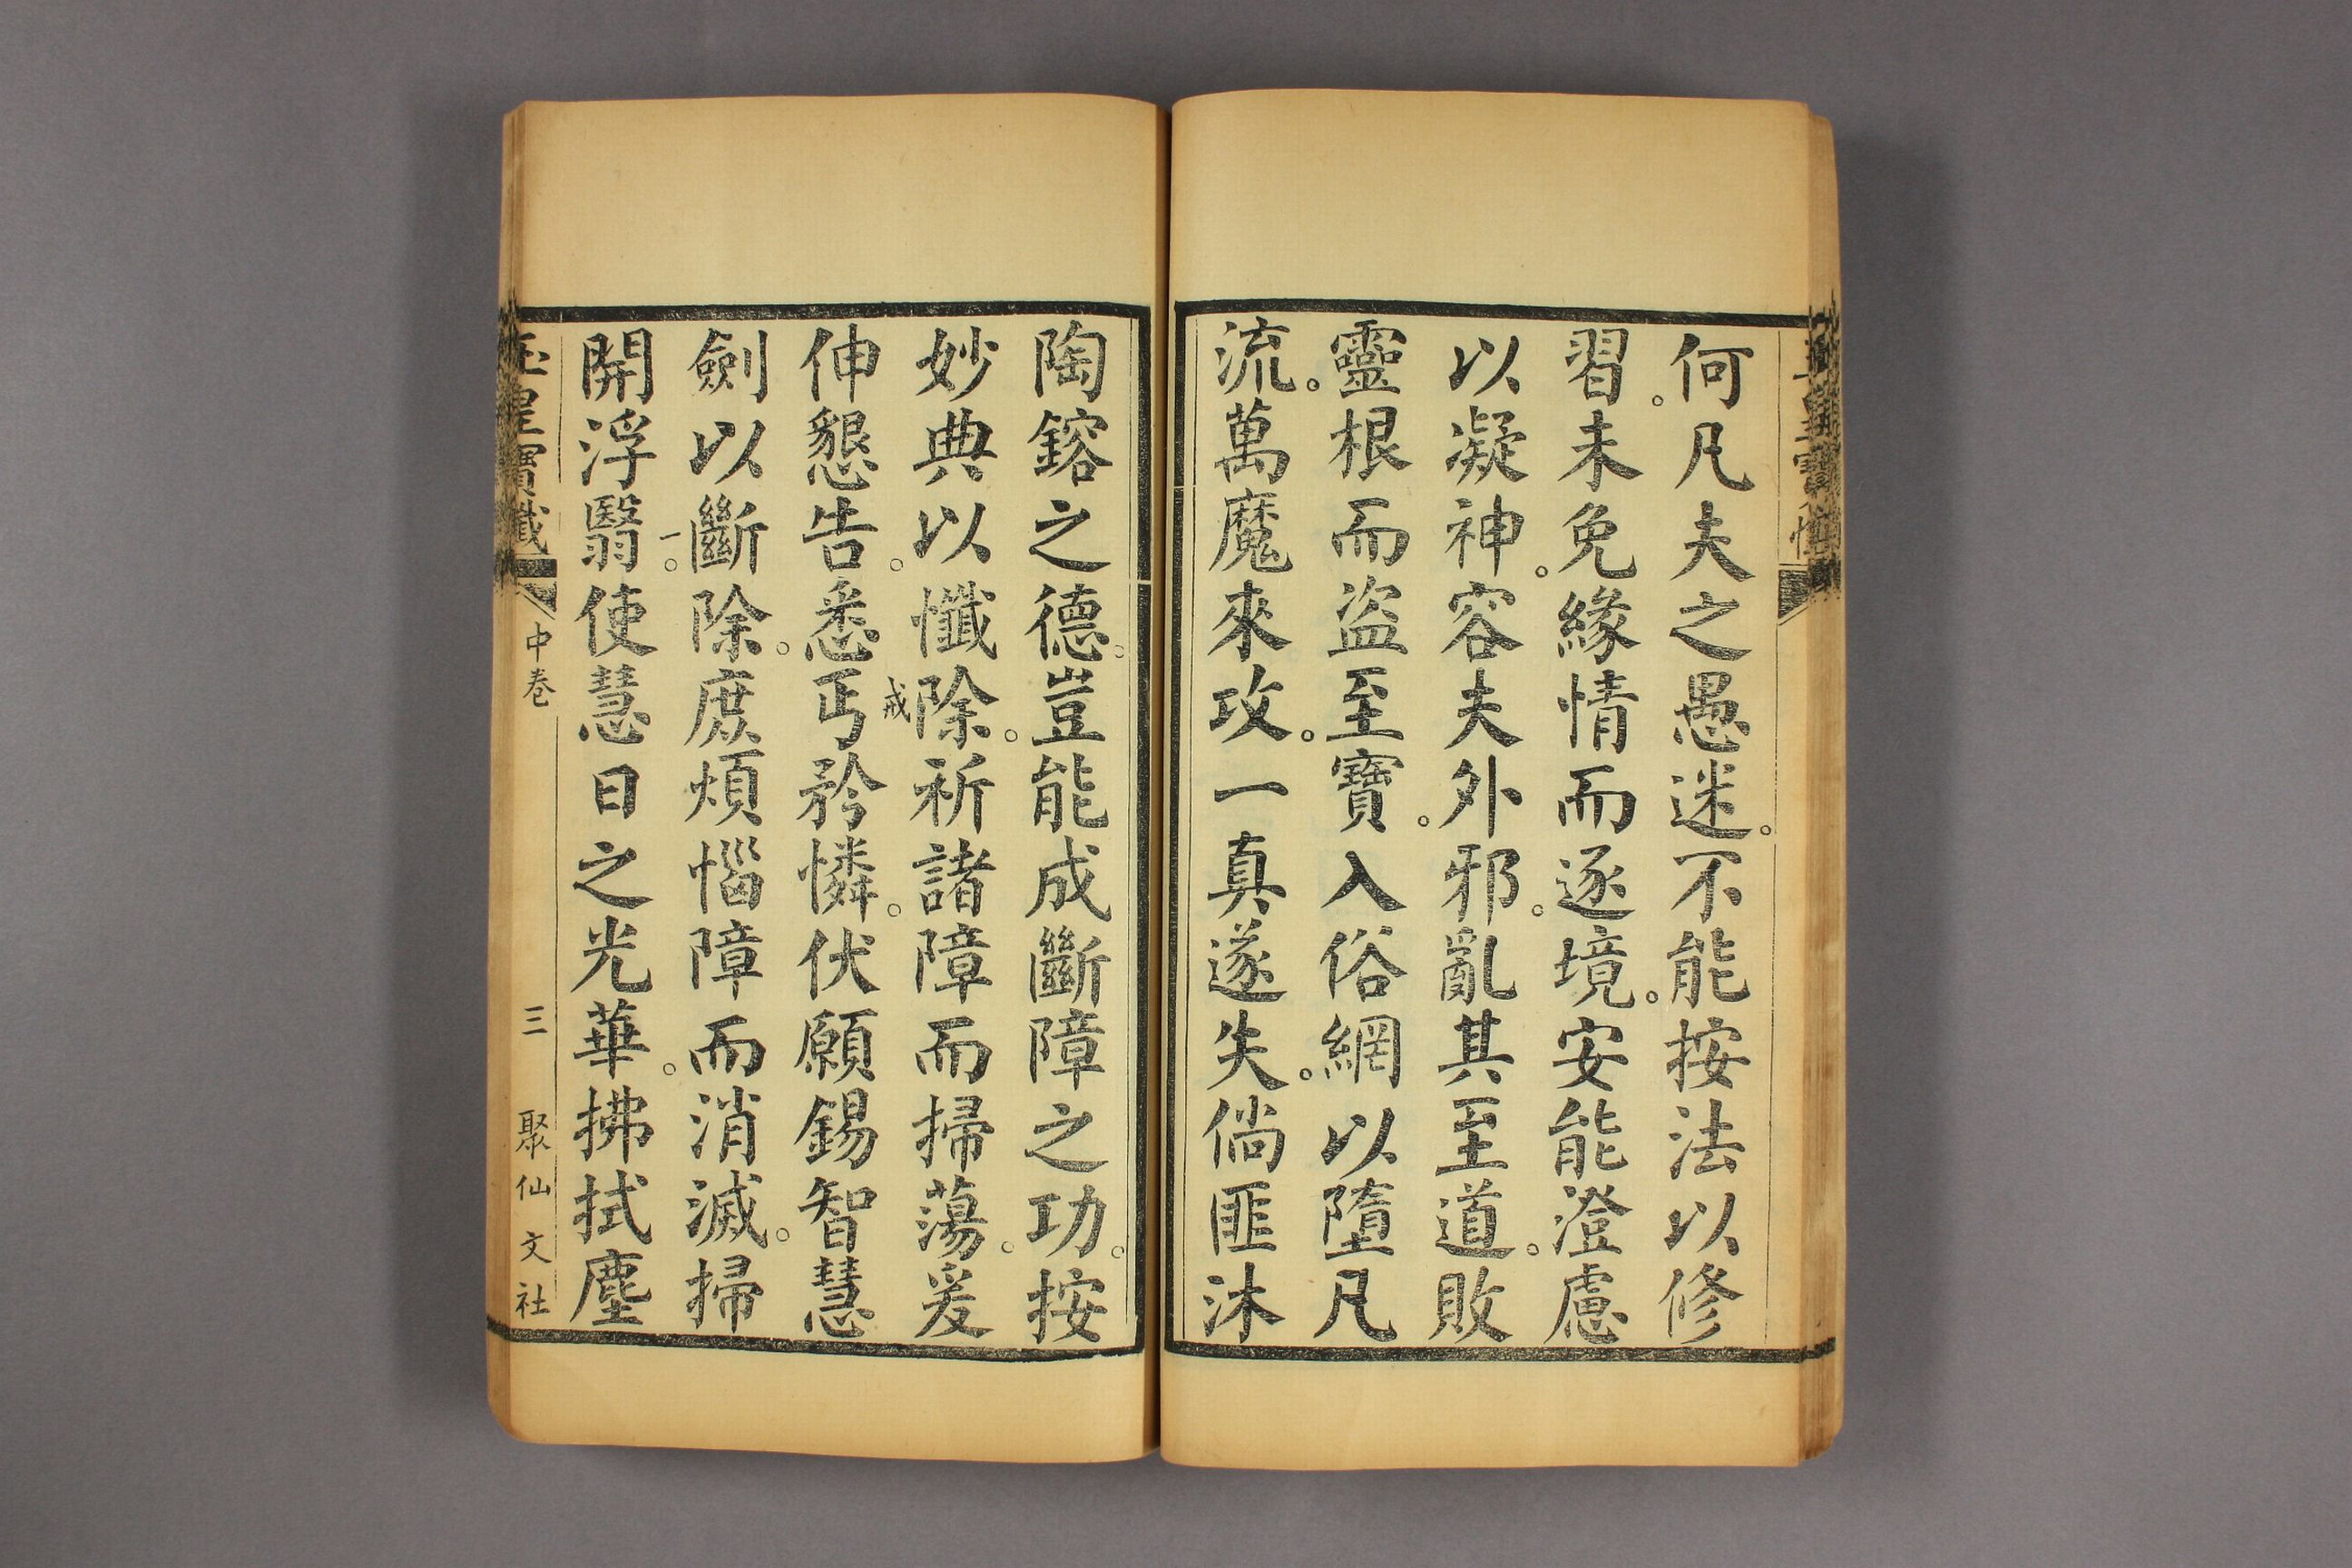 何凡夫之愚迷。不能按法以修
習。未免緣情而逐境。安能澄慮
以凝神。容夫外邪。亂其至道。敗
靈根而盜至寶。入俗網以墮凡
流。萬魔來攻。一真遂失。倘匪沐
陶鎔之德。豈能成斷障之功。按
妙典以懺除。祈諸障而掃蕩。爰
戒
伸懇告。悉丐矜憐。伏願錫智慧
劍以斷除。庶煩惱障而消滅。掃
一
開浮翳。使慧日之光華。拂拭塵
玉皇寶懺 中卷 三 聚仙文社